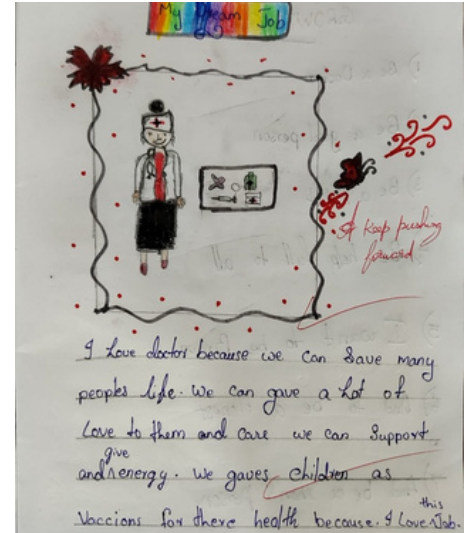 My Dream Job
Keep pushing
forward.
I Love doctor because we can Save many
peoples life. we can gave a Lot of
Love to them and care we can Support
and give energy. We gaves children as
Vaccions for there health because. I Love this Job.